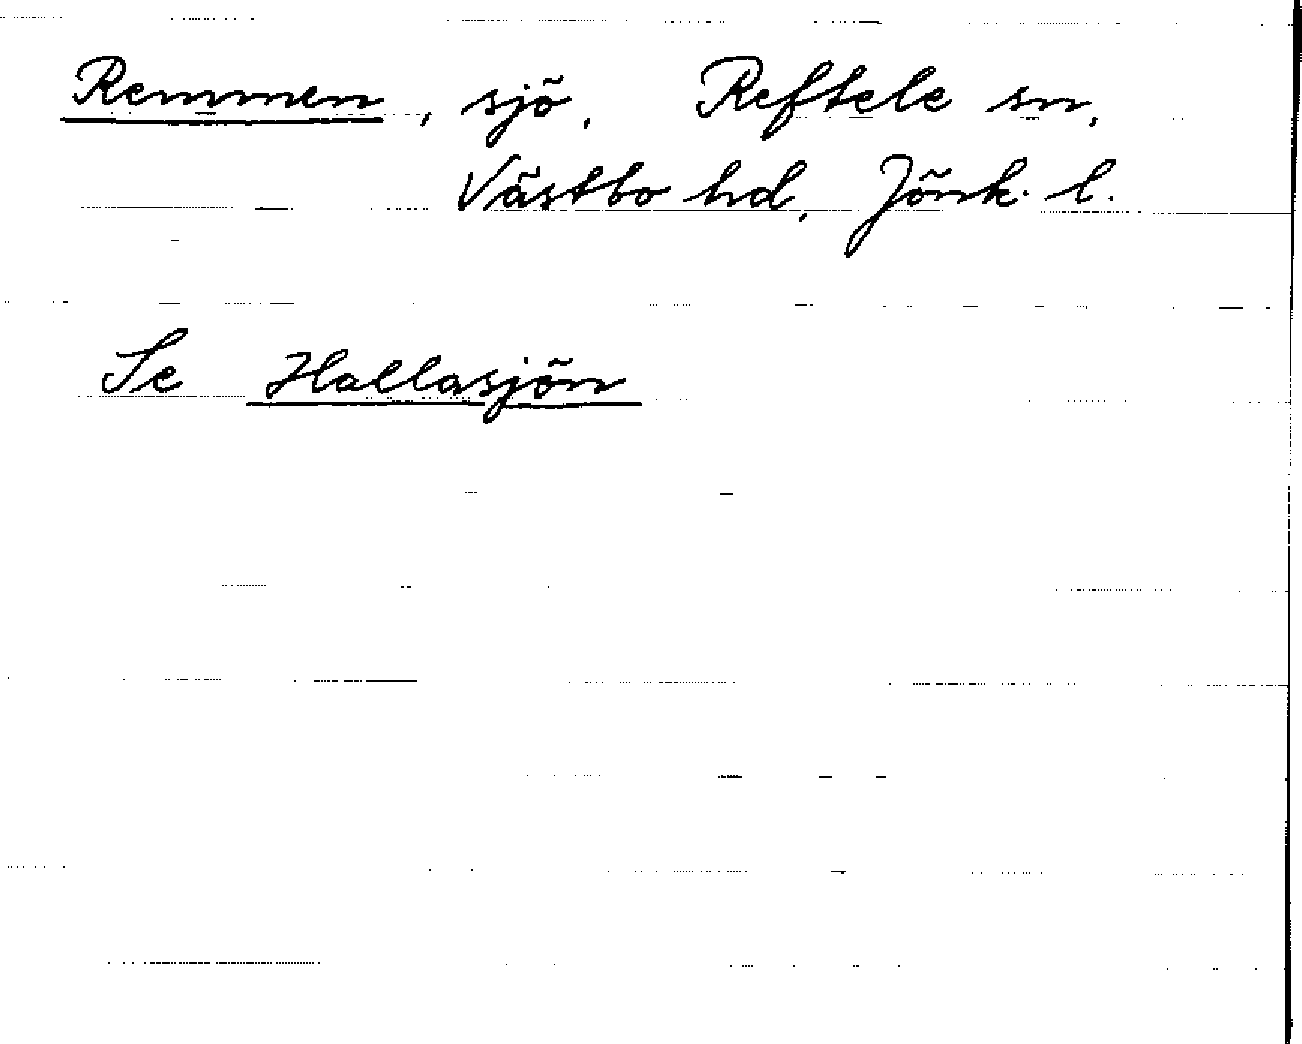 Remmen, sjö, Reftele sn,
Västbo hd, Jönk. l.
Se Hallasjön